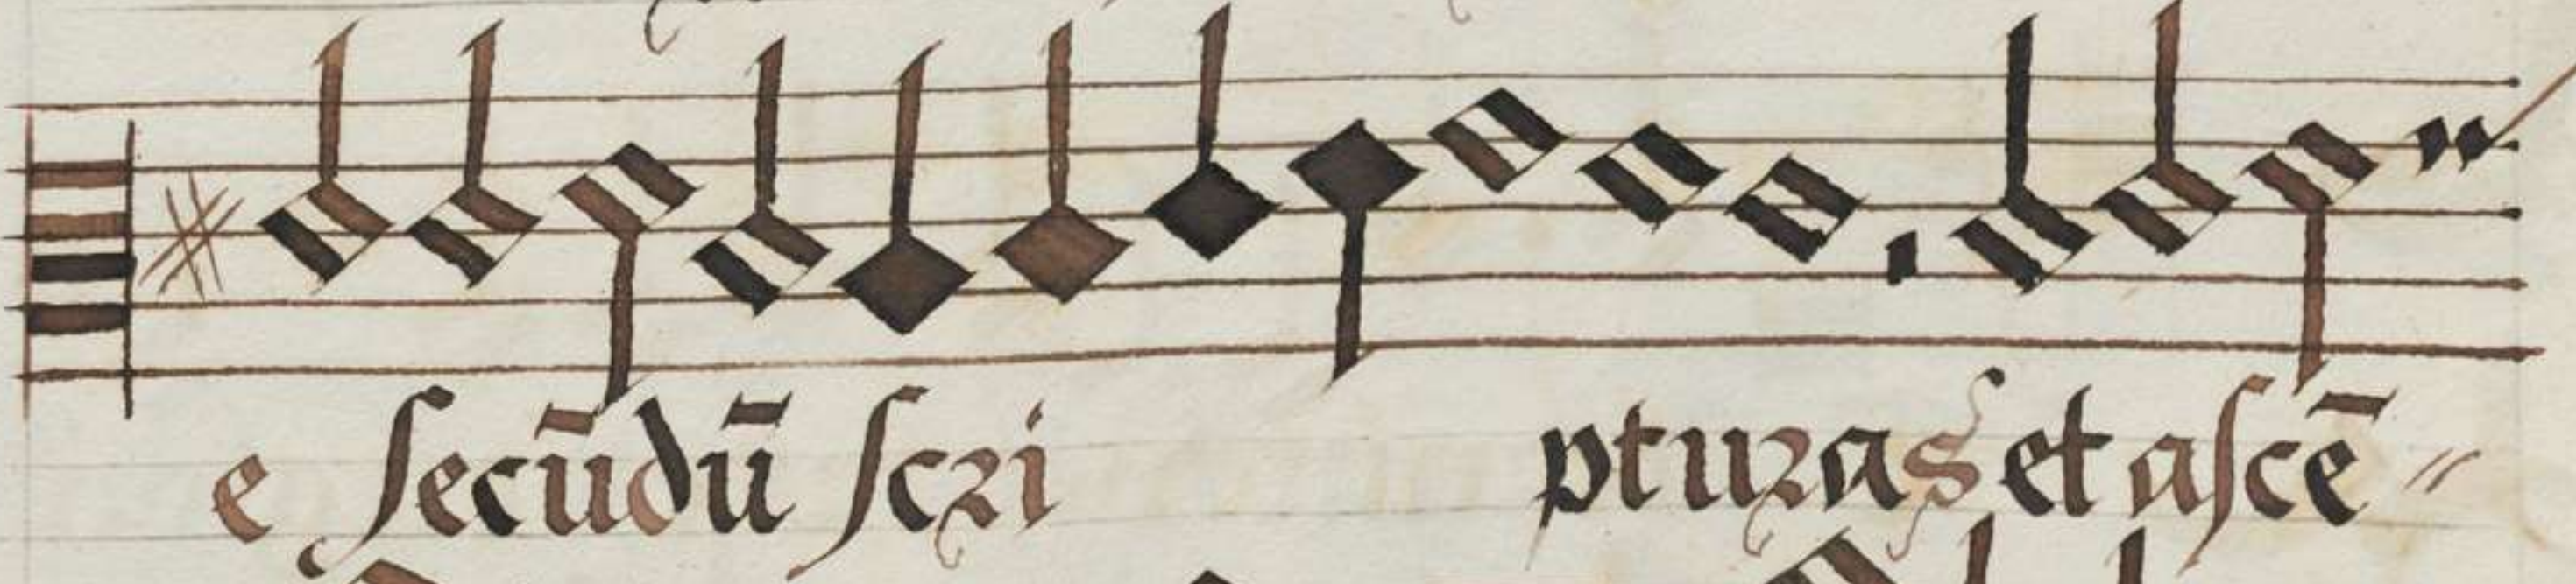 e ſecūdū ſcri pturas et aſcē〃